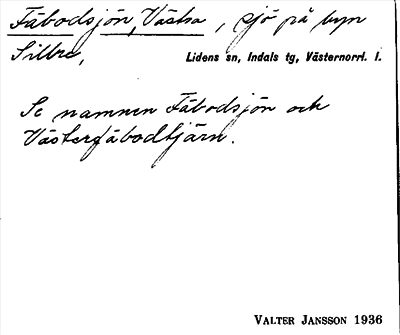 Fäbodsjön, Västra, sjö på byn
Sillre,
Lidens sn, Indals tg, Västernorrl. l.
Se namnen Fäbodsjön och
Västerfäbodtjärn.
VALTER JANSSON 1936